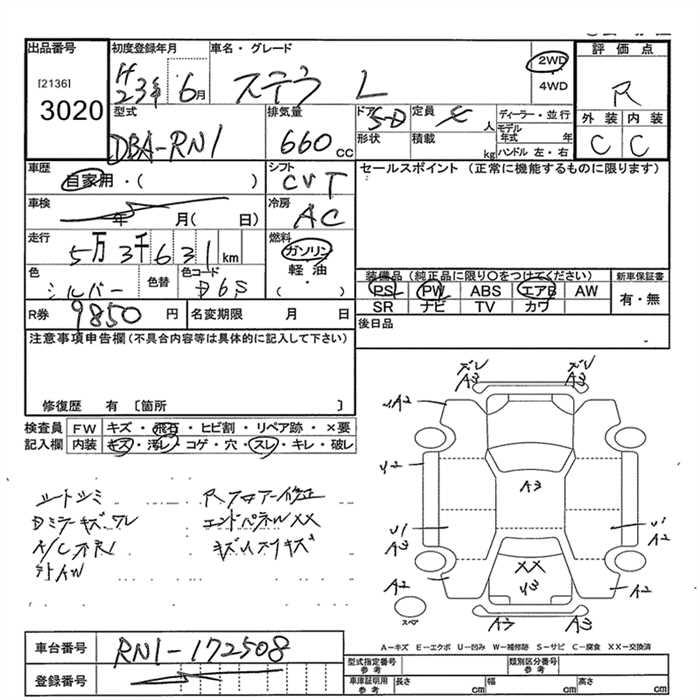 出品番号
[2136]
3020
初度登録年月
H23年6月
車名・グレード
ステラ L
2WD
4WD
評価点
R
外装 内装
C C
型式
DBA-RN1
排気量
660 cc
ドア 5-D
形状
定員 人
積載 kg
ディーラー・並行
モデル年式 年
ハンドル 左・右
車歴
自家用・( )
シフト
CVT
セールスポイント (正常に機能するものに限ります)
車検
年 月( 日)
冷房
AC
走行
5万3千631km
燃料
ガソリン
軽油
( ・ )
色
シルバー
色替
色コード
D6S
装備品 (純正品に限り○をつけてください)
PS PW ABS エアB AW
SR ナビ TV カワ
新車保証書
有・無
R券
9850円
名変期限 月 日
後日品
注意事項申告欄 (不具合内容等は具体的に記入して下さい)
修復歴 有 〔箇所 〕
検査員記入欄
FW キズ・飛石・ヒビ割・リペア跡・×要
内装 キズ・汚レ・コゲ・穴・スレ・キレ・破レ
シートシミ
Dミラーキズ ワレ
Rフロアー修正
エンドパネルXX
A3 A3
A2
A3
A3
A3
A2
A2
XX
スペア
A-キズ E-エクボ U-凹み W-補修跡 S-サビ C-腐食 XX-交換済
車台番号
RN1-172508
登録番号
型式指定番号 参考
類別区分番号 参考
車庫証明用 参考
長さ cm 幅 cm 高さ cm